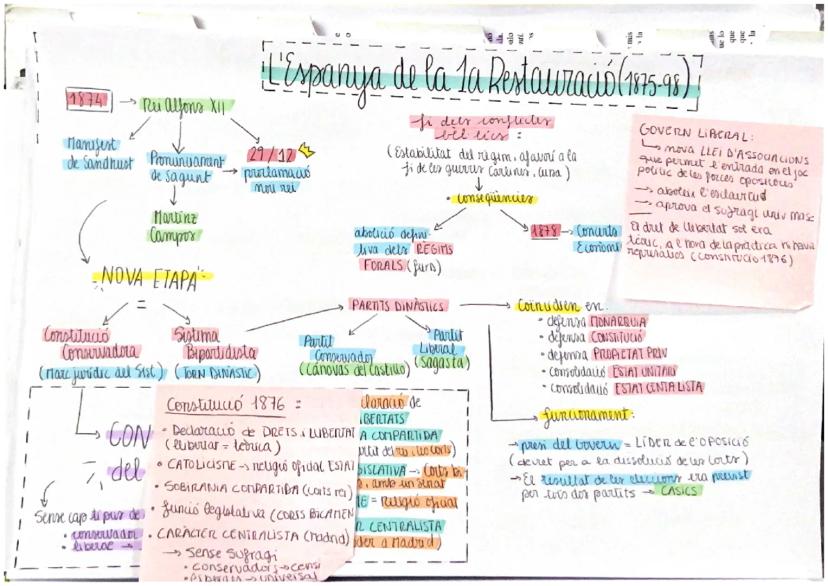 L'Espanya de la 1a Restauració (1875-98)
1874 → Rei Alfons XII
Manifest
de Sandhust
Pronunciament
de Sagunt
29/12
proclamació
nou rei
Martínz
Campos
NOVA ETAPA
=
Constitució
Conservadora
(Marc jurídic del Sist)
Sistema
Bipartidista
(TORN DINÀSTIC)
fi dels conflictes
bèl·lics :
(Estabilitat del règim, afavorí a la
fi de les guerres carlines, cuna)
• conseqüències
abolició defini-
tiva dels RÈGIMS
FORALS (furs)
1878 → Concerts
Econòmi
GOVERN LIBERAL:
↳ nova LLEI D'ASSOCIACIONS
que permet l'entrada en el joc
polític de les forces opositores
→ aboleix l'esclavitud
→ aprova el sufragi univ masc
El dret de llibertat sol era
teòric, a l'hora de la pràctica
(CONSTITUCIÓ 1876)
PARTITS DINÀSTICS
Partit
Conservador
(Cánovas del Castillo)
Partit
Liberal
(Sagasta)
Coincidien en:
• defensa MONARQUIA
• defensa CONSTITUCIÓ
• defensa PROPIETAT PRIV
• consolidació ESTAT UNITARI
• consolidació ESTAT CENTRALISTA
funcionament:
→ presi del Govern = LÍDER DE L'OPOSICIÓ
(decret per a la dissolució de les Corts)
→ El resultat de les eleccions era previst
per tots dos partits → CASICS
CON
del
Sense cap tipus de
• conservador
• liberal →
Constitució 1876 =
• Declaració de DRETS i LLIBERTAT
(llibertat = teòrica)
• CATOLICISME → religió oficial ESTAT
• SOBIRANIA COMPARTIDA (Corts rei)
• funció legislativa (CORTS BICAMEN
• CARÀCTER CENTRALISTA (Madrid)
→ Sense Sufragi
• conservadors → censi
• liberals → universal
claració de
IBERTATS
A COMPARTIDA
ISLATIVA → Corts bi
, amb un senat
= Religió oficial
R CENTRALISTA
der a Madrid)